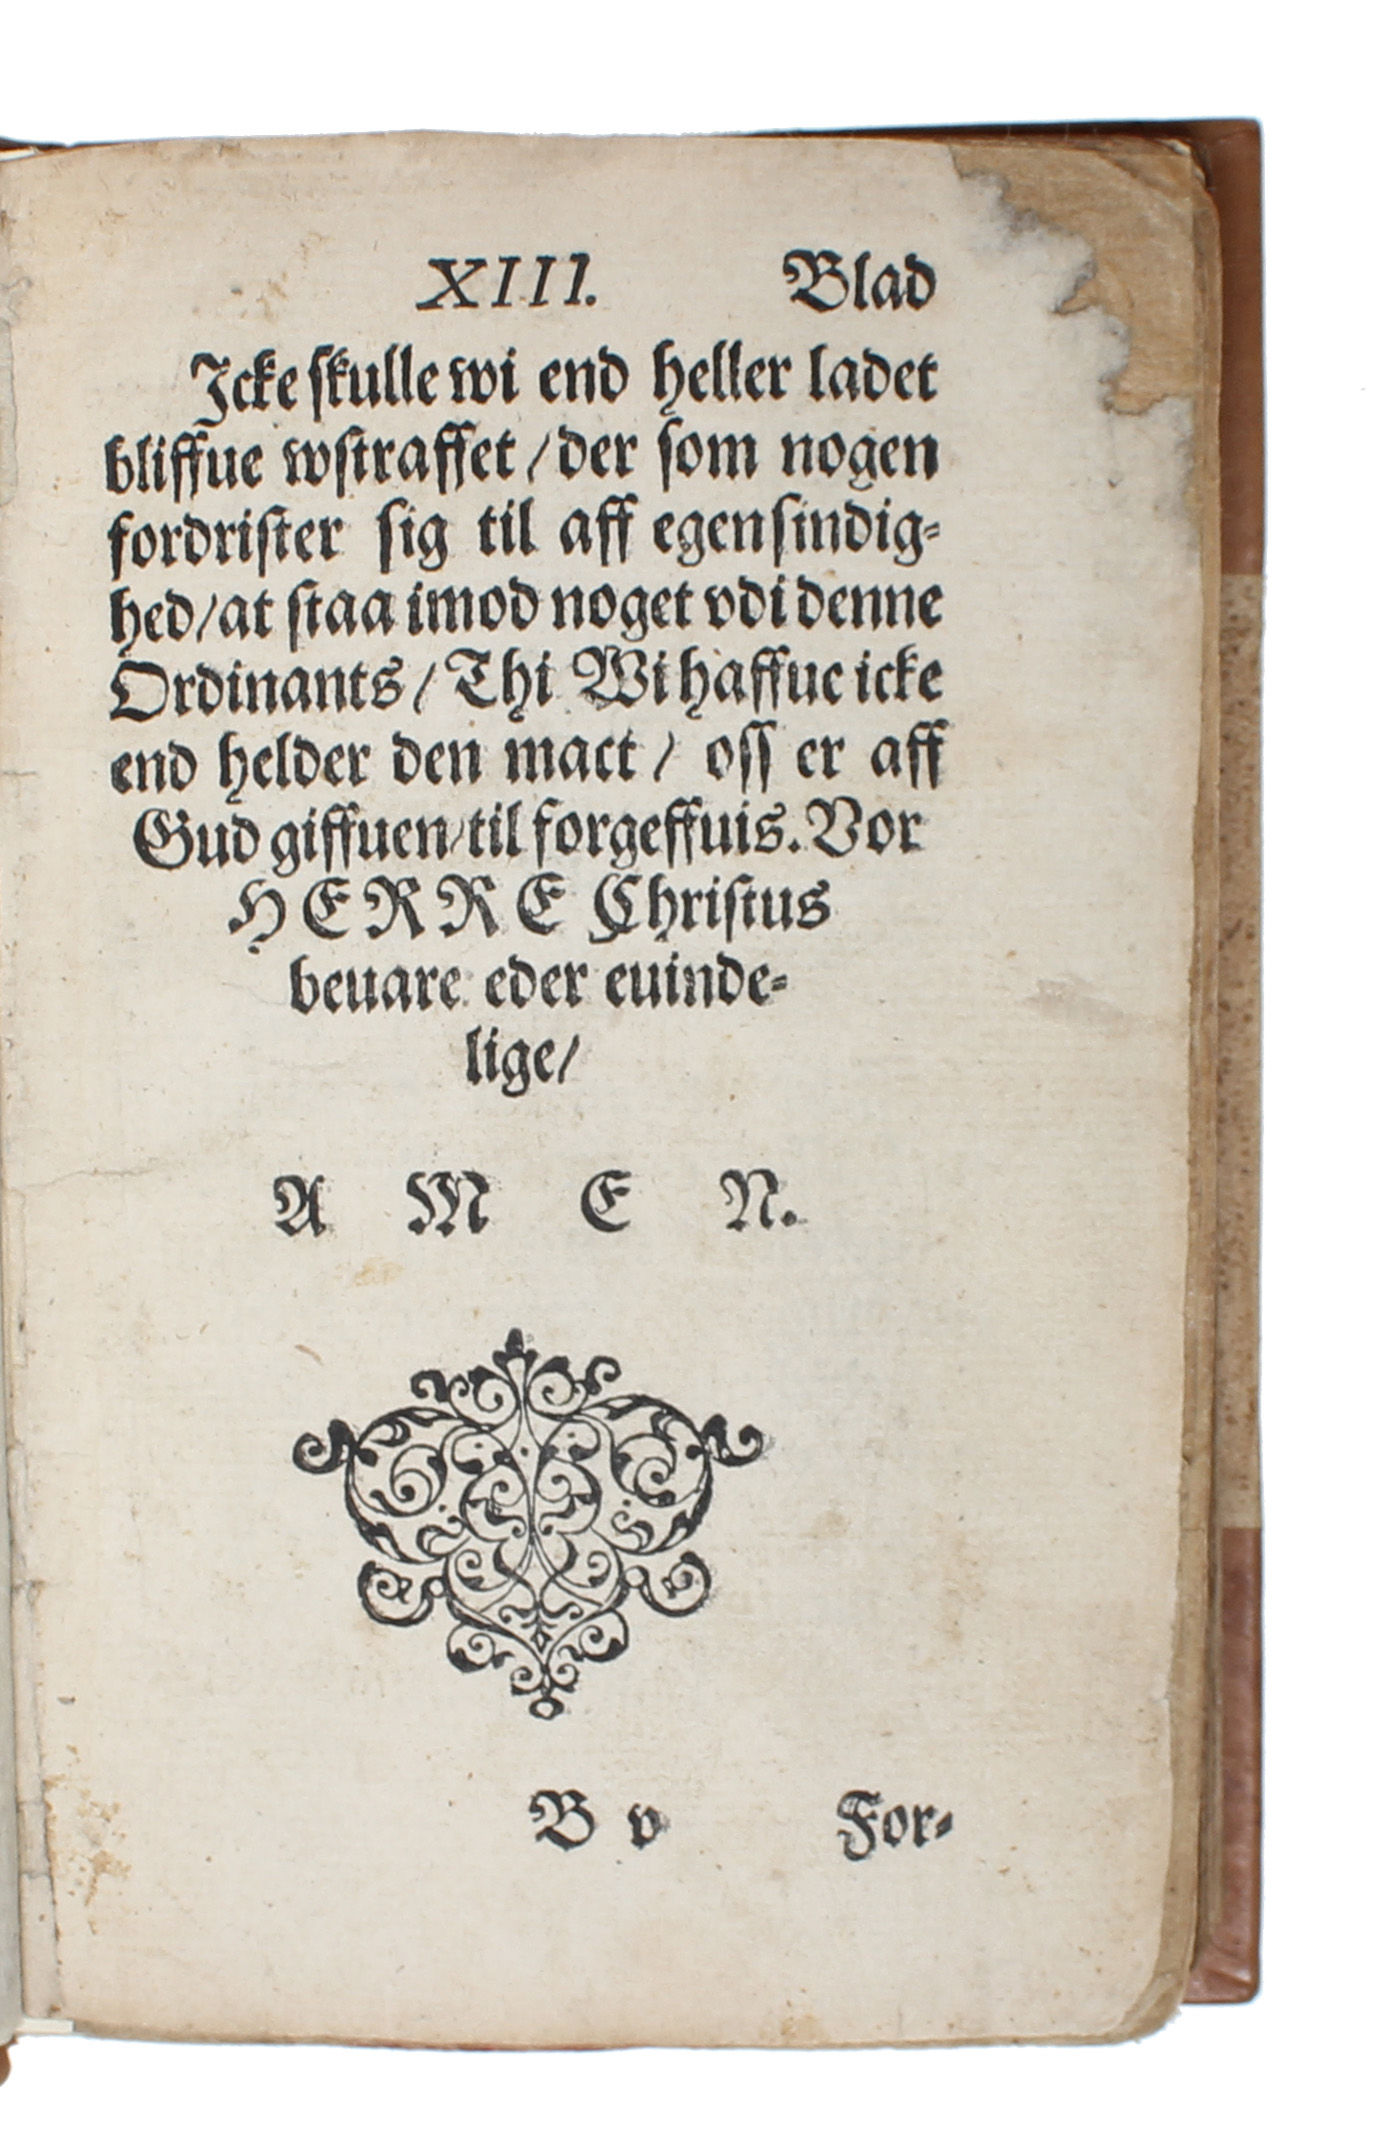 XIII. Blad
Icke skulle wi end heller ladet
bliffue wstraffet / der som nogen
fordrister sig til aff egensindig-
hed / at staa imod noget vdi denne
Ordinants / Thi Wi haffue icke
end helder den mact / oss er aff
Gud giffuen / til forgeffuis. Vor
HERRE Christus
beuare eder euinde-
lige /
A M E N.
B v For-